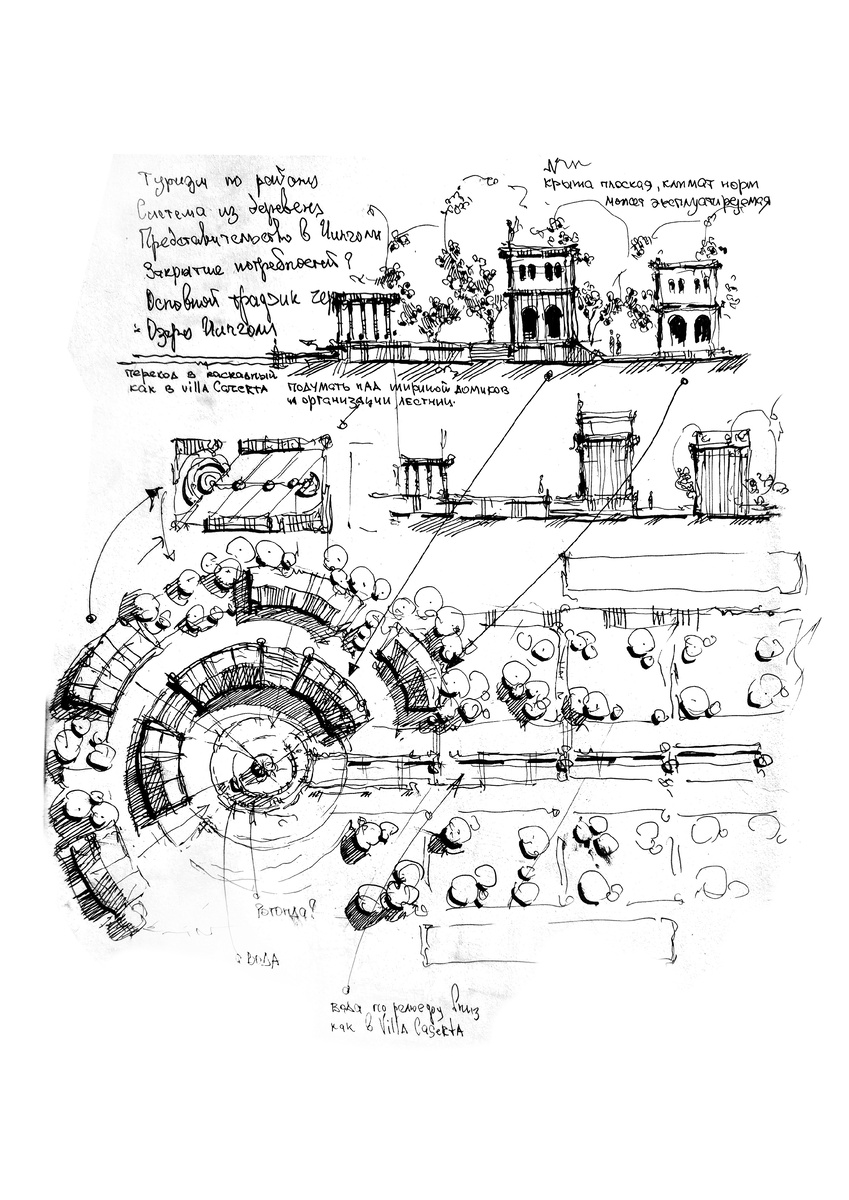 Туризм по району
Система из деревень
Представительство в Чинголи
Закрытие потребностей?
Основной трафик чер
Озеро Чинголи
крыша плоская, климат норм
может эксплуатируемая
переход в каскадный
как в villa Caserta
подумать над шириной домиков
и организации лестниц.
Ротонда?
? вода
вода по рельефу вниз
как в Villa Caserta